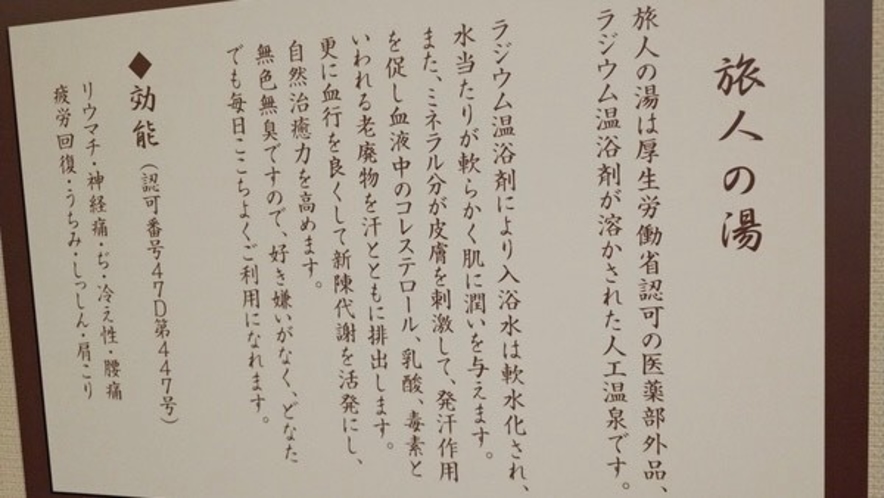 旅人の湯
旅人の湯は厚生労働省認可の医薬部外品、
ラジウム温浴剤が溶かされた人工温泉です。
ラジウム温浴剤により入浴水は軟水化され、
水当たりが軟らかく肌に潤いを与えます。
また、ミネラル分が皮膚を刺激して、発汗作用
を促し血液中のコレステロール、乳酸、毒素と
いわれる老廃物を汗とともに排出します。
更に血行を良くして新陳代謝を活発にし、
自然治癒力を高めます。
無色無臭ですので、好き嫌いがなく、どなた
でも毎日ここちよくご利用になれます。
◆効能（認可番号47D第447号）
リウマチ・神経痛・ぢ・冷え性・腰痛
疲労回復・うちみ・しっしん・肩こり